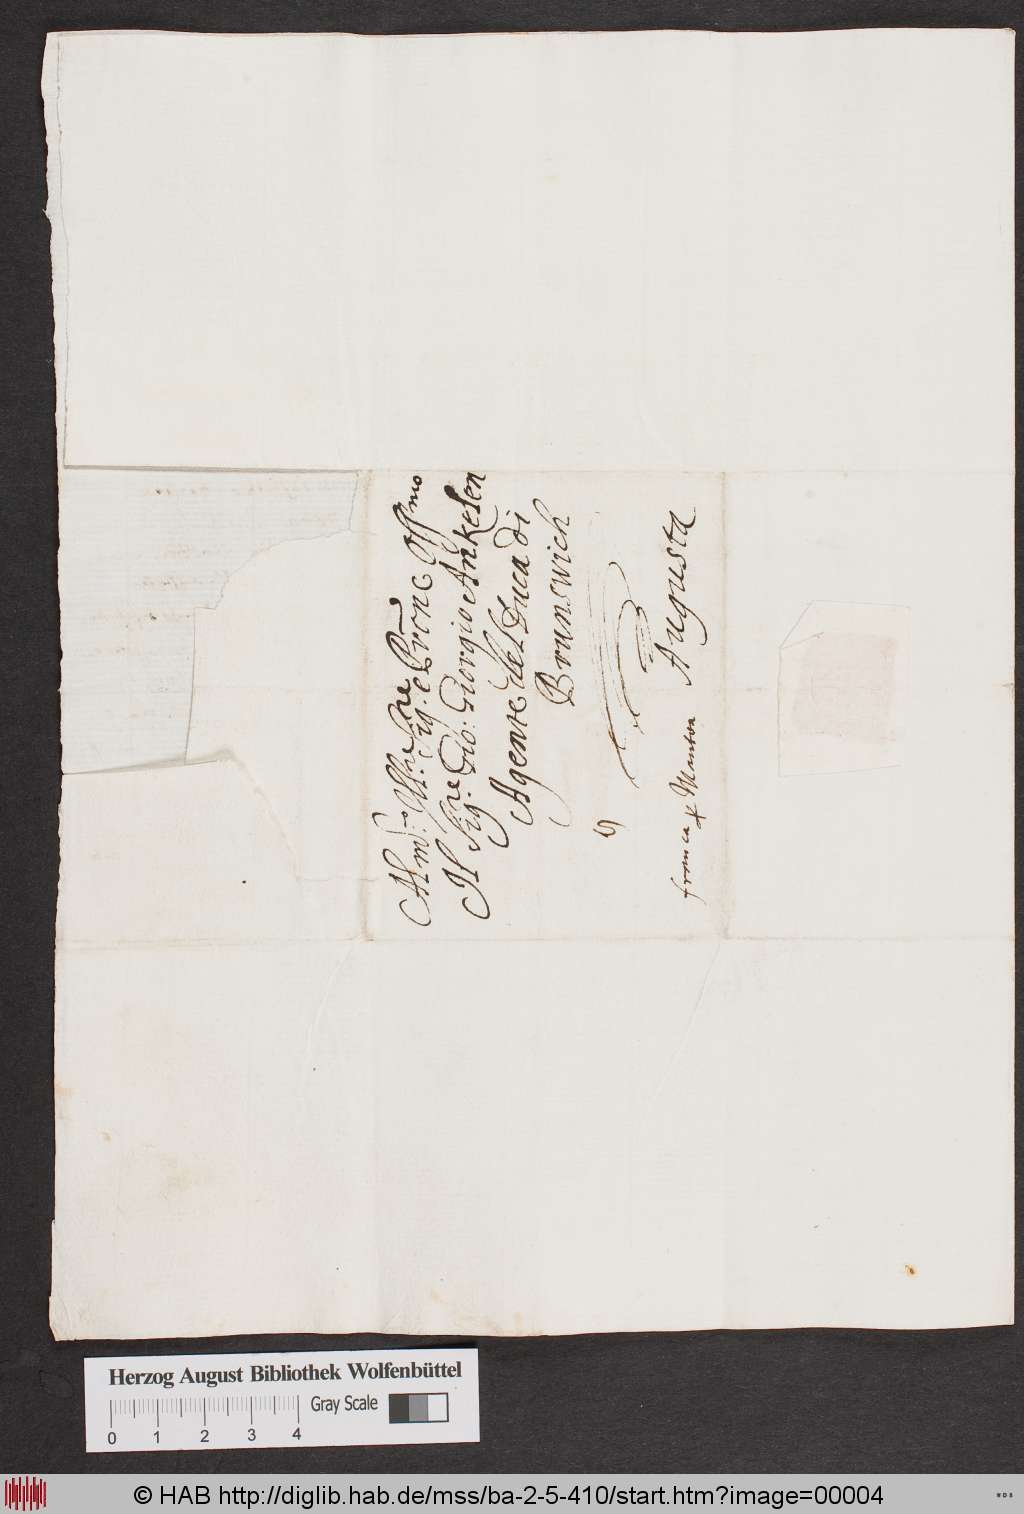 Al m.to Ill.re Sig.re e Prone Oss.mo
Il Sig.re Gio: Giorgio Ankelen
Agente del Duca di
Brunswich
Augusta
franca Mantoa
Herzog August Bibliothek Wolfenbüttel
Gray Scale
0 1 2 3 4
© HAB http://diglib.hab.de/mss/ba-2-5-410/start.htm?image=00004